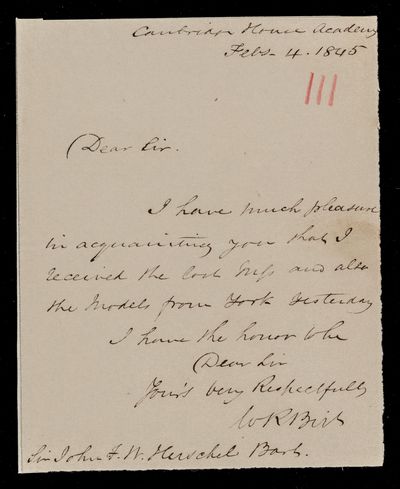 Cambridge House Academy
Feb. 4. 1845
111
Dear Sir.
I have much pleasure
in acquainting you that I
received the lost Mss and also
the Models from York yesterday
I have the honor to be
Dear Sir
Your's very Respectfully
W R Birt
Sir John F. W. Herschel Bart.